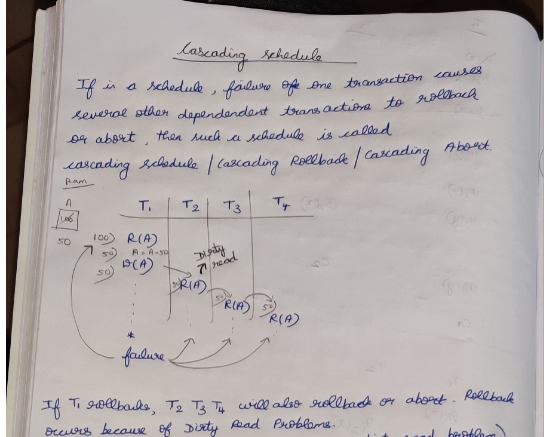 Cascading schedule
If in a schedule, failure of one transaction causes
several other dependent transactions to rollback
or abort, then such a schedule is called
cascading schedule / Cascading Rollback / Cascading Abort.
Ram
A T1 T2 T3 T4
100
50 100) R(A)
50) A = A-50 Dirty
50) W(A) read
50) R(A)
50) R(A) 50)
R(A)
*
failure
If T1 rollbacks, T2 T3 T4 will also rollback or abort. Rollback
occurs because of Dirty Read Problems.